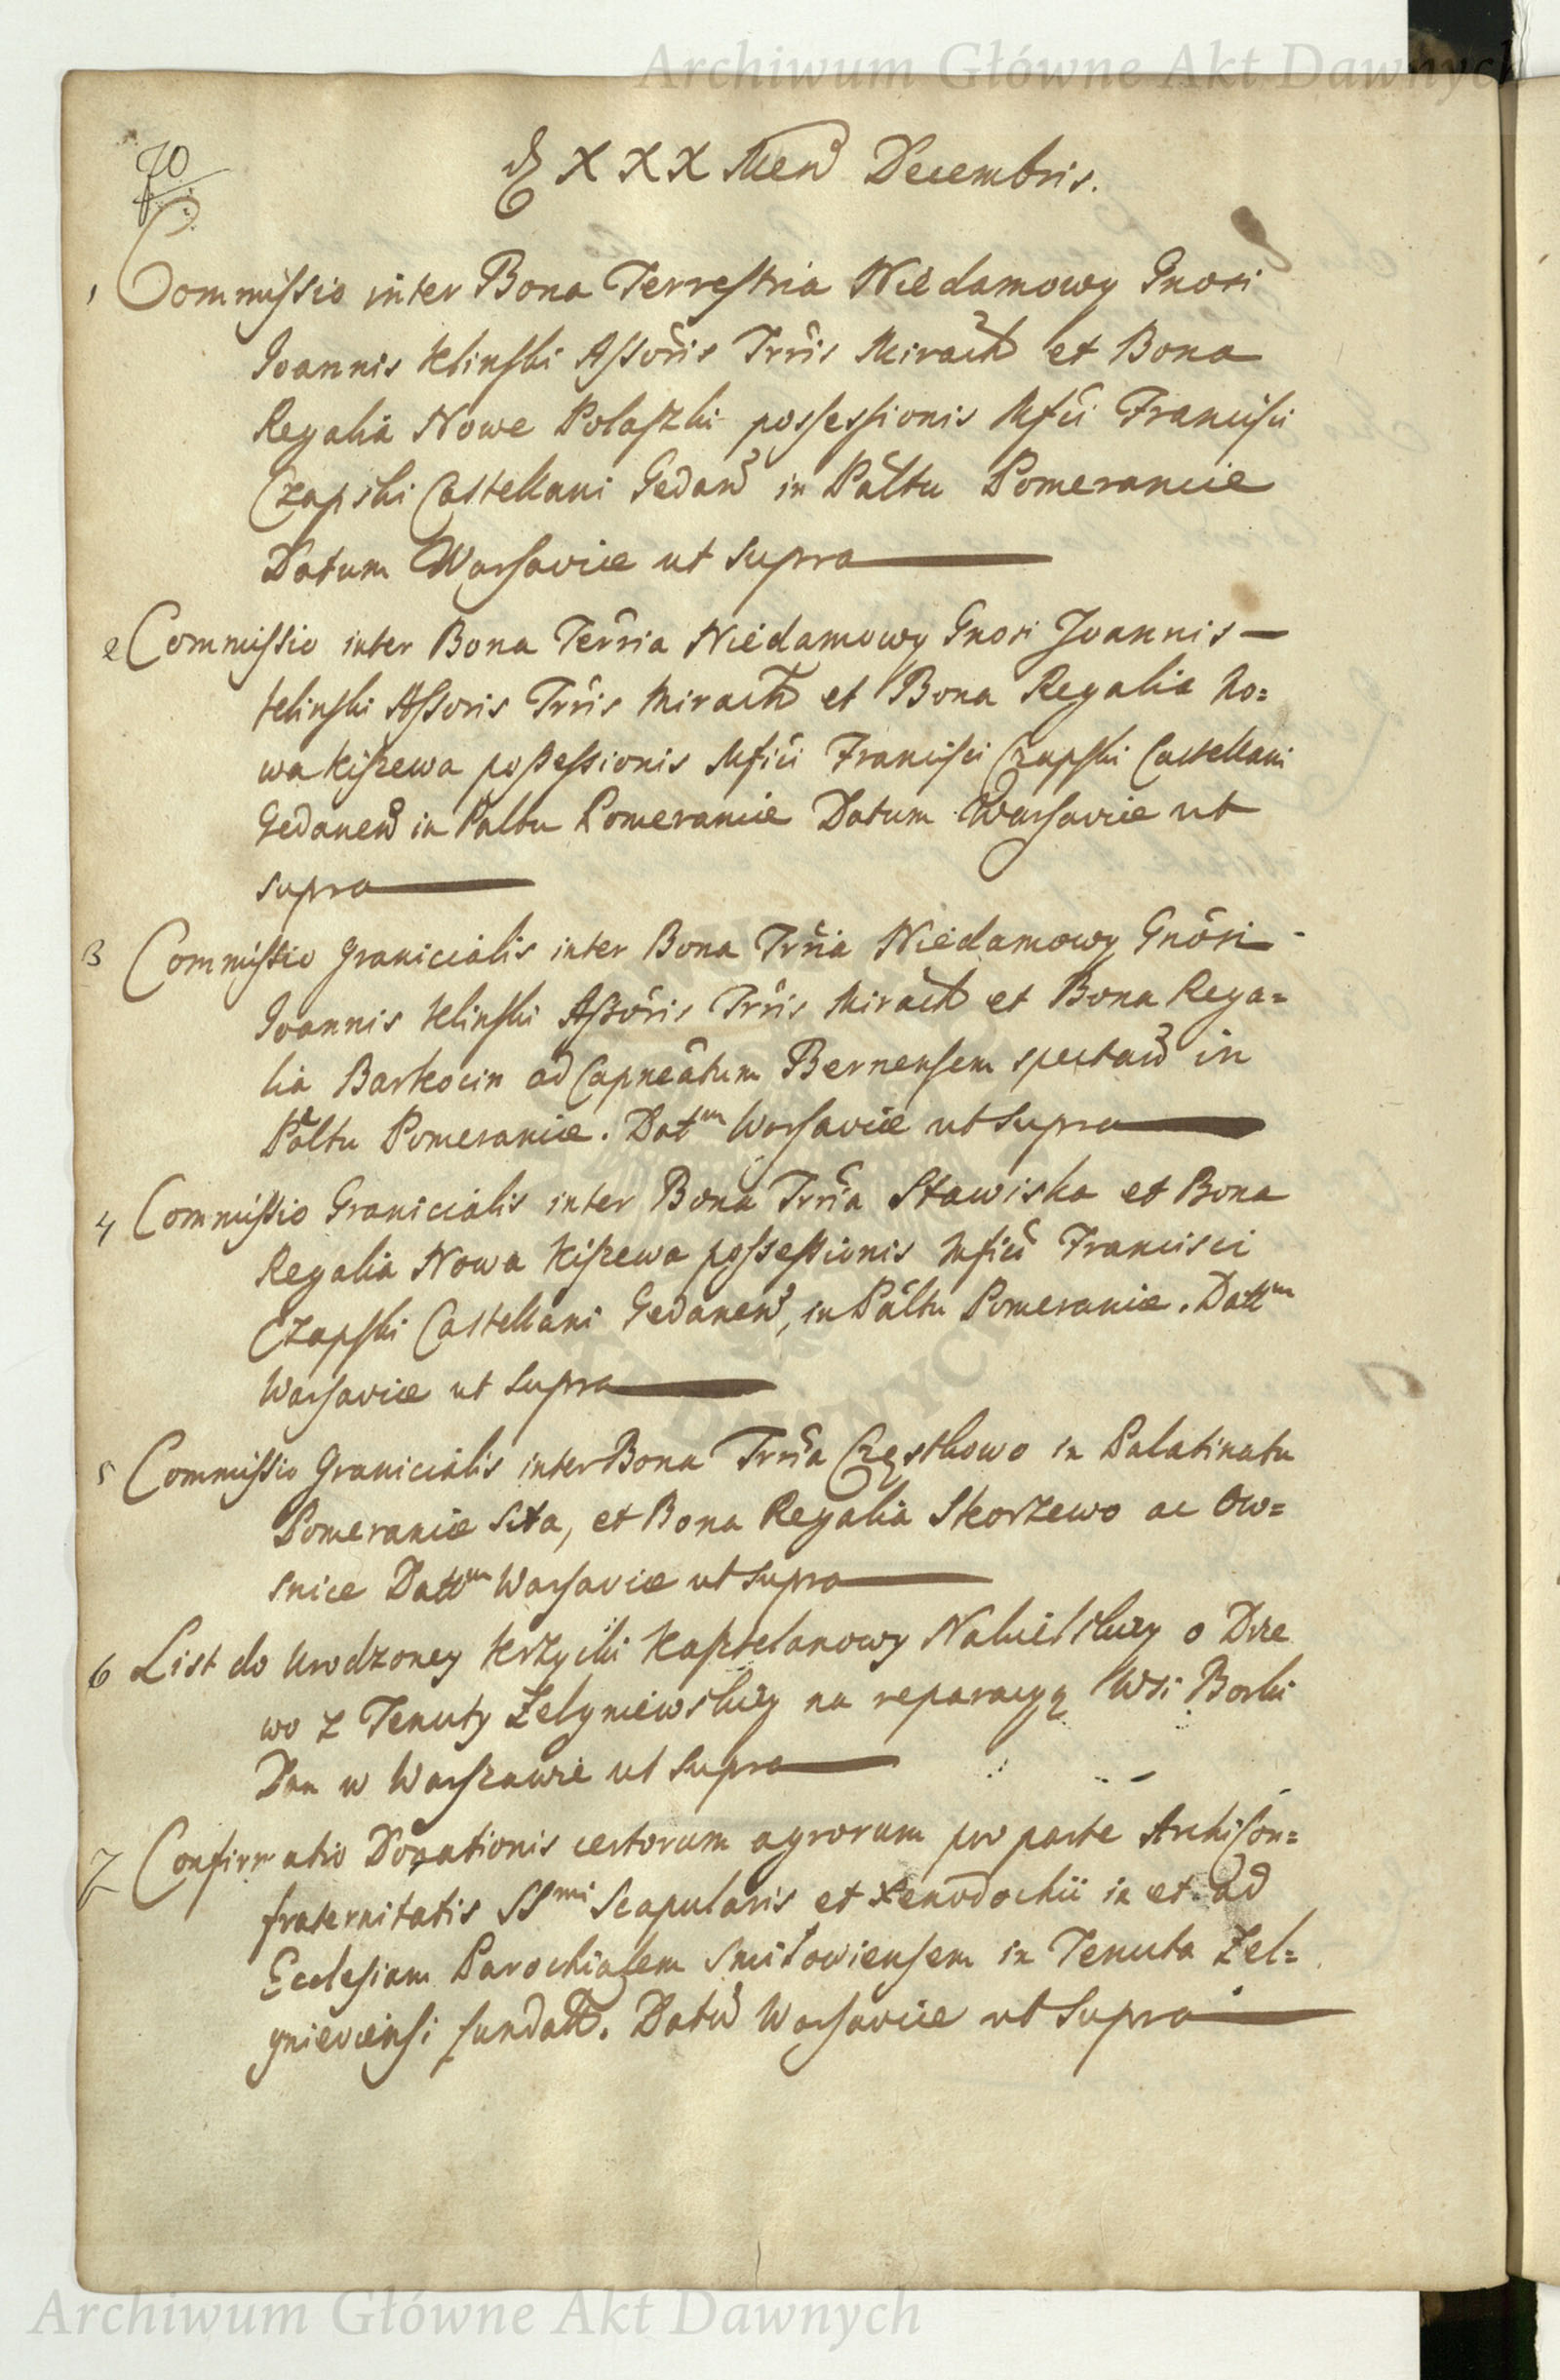 Archiwum Główne Akt Dawnych
70
D XXX Men Decembris.
1 Commissio inter Bona Terrestria Niedamowy Gnosi
Joannis Klinski Assoris Trris Mirach et Bona
Regalia Nowe Polaszki possessionis Mfci Francisci
Czapski Castellani Gedan in Paltu Pomeraniæ
Datum Warsaviæ ut supra
2 Commissio inter Bona Terria Niedamowy Gnosi Joannis
Klinski Assoris Trris Mirach et Bona Regalia No=
wa Kiszewa possessionis Mfici Francisci Czapski Castellani
Gedanen in Paltu Pomeraniæ Datum Warsaviæ ut
supra
3 Commissio Granicialis inter Bona Trria Niedamowy Gnosi
Joannis Klinski Assoris Trris Mirach et Bona Rega=
lia Barkocin ad Capneatum Bernensem spectan in
Paltu Pomeraniæ. Datm Warsaviæ ut supra
4 Commissio Granicialis inter Bona Trria Stawiska et Bona
Regalia Nowa Kiszewa possessionis Mfici Francisci
Czapski Castellani Gedanen, in Paltu Pomeraniæ. Dattm
Warsaviæ ut supra
5 Commissio Granicialis inter Bona Trria Częstkowo in Palatinatu
Pomeraniæ Sita, et Bona Regalia Skorzewo ac Ow=
snice Dattm Warsaviæ ut supra
6 List do Urodzoney Krzycki Kasztelanowy Nakielskiey o Drze
wo z Tenuty Zelgniewskiey na reparacyą Wsi Borki
Dan w Warszawie ut supra
7 Confirmatio Donationis certorum agrorum pro parte ArchiCon=
fraternitatis SSmi Scapularis et Xenodochii in et ad
Ecclesiam Parochialem Smiłowiensem in Tenuta Zel=
gnieviensi fundatt. Datum Warsaviæ ut supra
Archiwum Główne Akt Dawnych